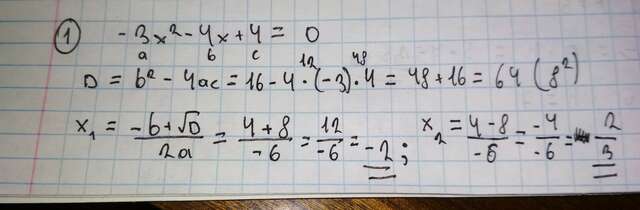 ① -3x² - 4x + 4 = 0
a b c
12 48
D = b² - 4ac = 16 - 4 · (-3) · 4 = 48 + 16 = 64 (8²)
x₁ = (-b + √D)/2a = (4 + 8)/-6 = 12/-6 = -2 ; x₂ = (4 - 8)/-6 = -4/-6 = 2/3